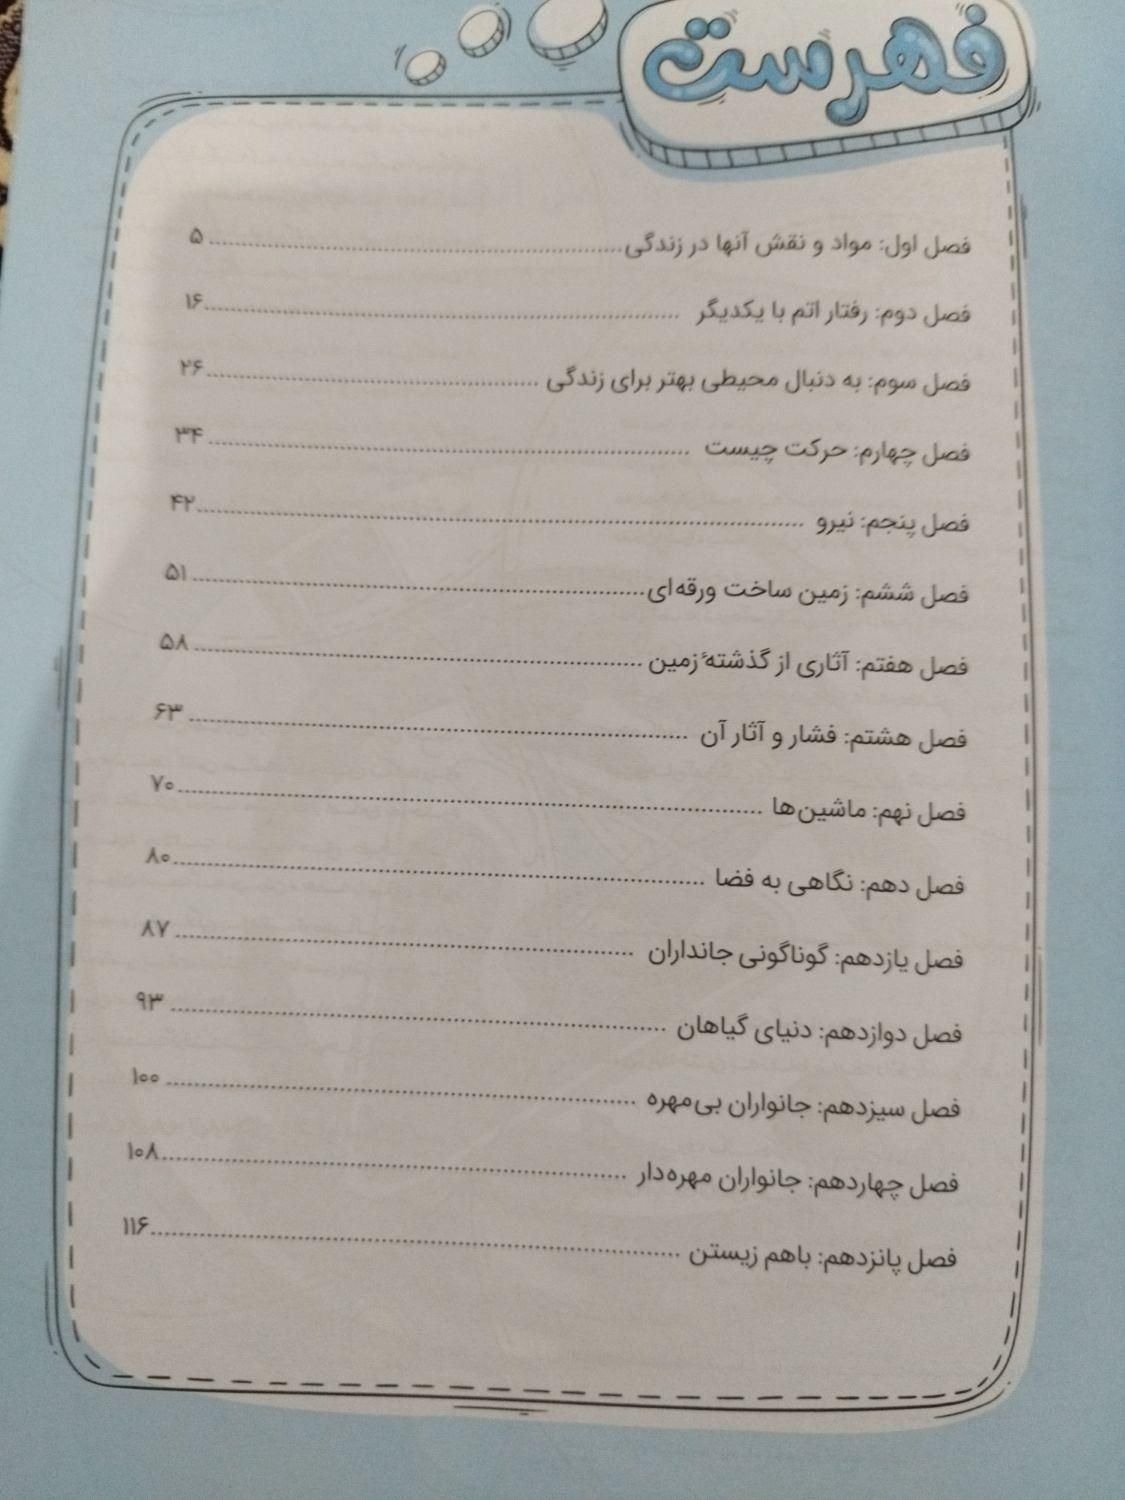 فهرست
فصل اول: مواد و نقش آنها در زندگی ........ ۵
فصل دوم: رفتار اتم با یکدیگر ........ ۱۶
فصل سوم: به دنبال محیطی بهتر برای زندگی ........ ۲۶
فصل چهارم: حرکت چیست ........ ۳۴
فصل پنجم: نیرو ........ ۴۲
فصل ششم: زمین ساخت ورقه‌ای ........ ۵۱
فصل هفتم: آثاری از گذشتهٔ زمین ........ ۵۸
فصل هشتم: فشار و آثار آن ........ ۶۳
فصل نهم: ماشین‌ها ........ ۷۰
فصل دهم: نگاهی به فضا ........ ۸۰
فصل یازدهم: گوناگونی جانداران ........ ۸۷
فصل دوازدهم: دنیای گیاهان ........ ۹۳
فصل سیزدهم: جانواران بی‌مهره ........ ۱۰۰
فصل چهاردهم: جانواران مهره‌دار ........ ۱۰۸
فصل پانزدهم: باهم زیستن ........ ۱۱۶